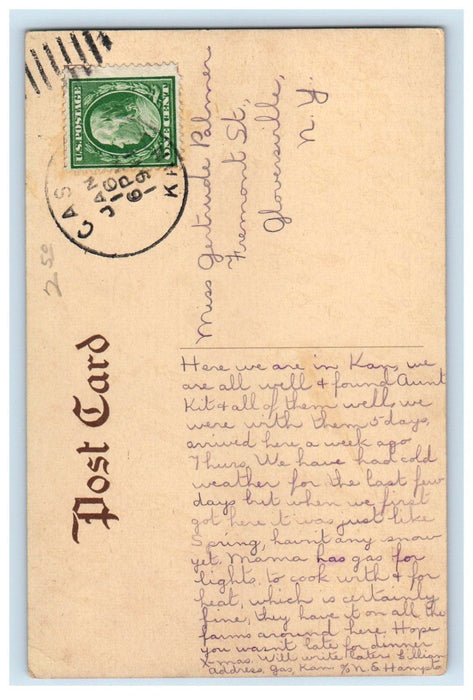 Post Card
U.S. POSTAGE
ONE CENT
GAS
JAN
16
6 PM
19
KA
2 50
Miss Gertrude Palmer
Fremont St.,
Gloversville,
N. Y.
Here we are in Kan, we
are all well & found Aunt
Kit & all of them well, we
were with them 5 days,
arrived here a week ago
Thurs. We have had cold
weather for the last few
days but when we first
got here it was just like
Spring, havn't any snow
yet. Mama has gas for
lights, to cook with & for
heat, which is certainly
fine, they have it on all the
farms around here. Hope
you wasn't late for dinner
X-mas. Will write later. Lillian
Address, Gas, Kan. % N. E. Hampto